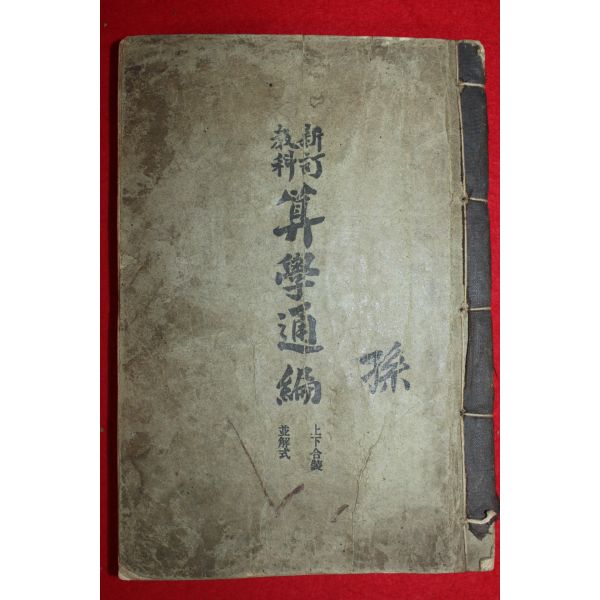 新訂
敎科
算學通編
上下合製
並解式
孫